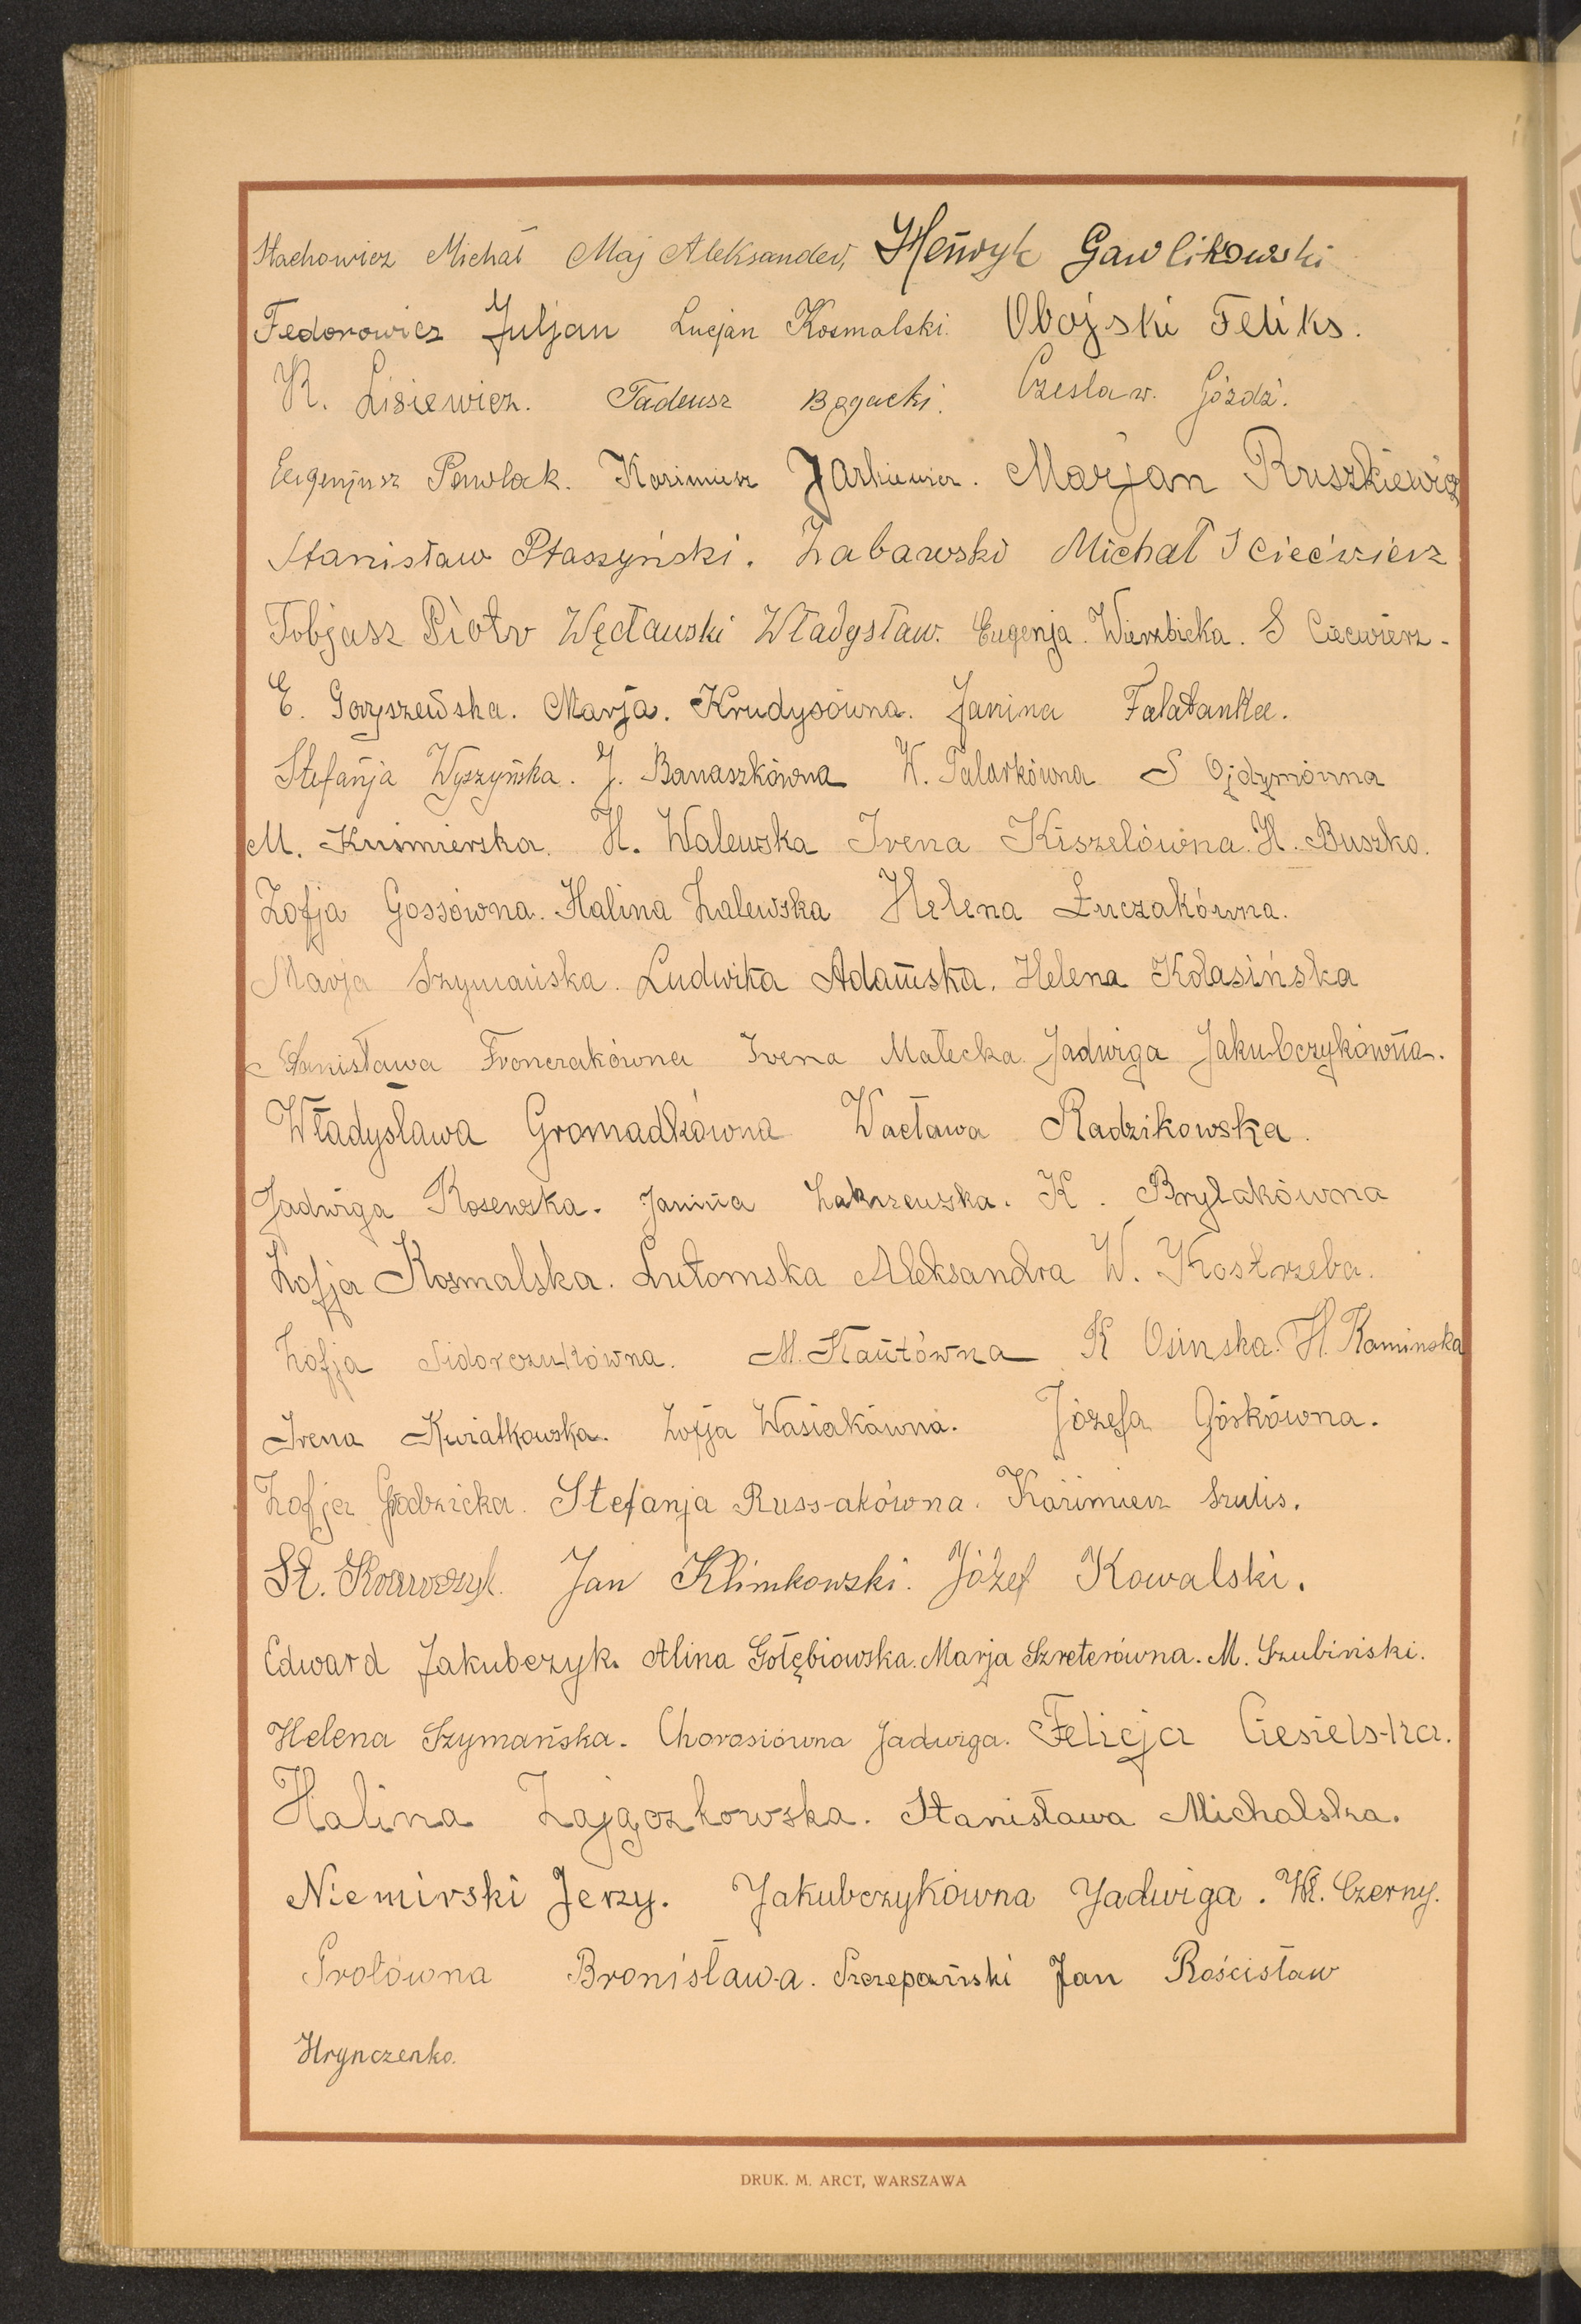 Stachowicz Michał Maj Aleksander, Henryk Gawlikowski
Fedorowicz Juljan Lucjan Kosmalski. Obojski Feliks.
R. Lisiewicz. Tadeusz Bogacki. Czesław. Góźdź.
Eugenjusz Pawlak. Kazimierz Jarkiewicz. Marjan Ruszkiewicz
Stanisław Ptaszyński. Zabawski Michał J Ciećwierz
Tobjasz Piotr Węcławski Władysław. Eugenja. Wierzbicka. S Ciecwierz-
E. Goryszewska. Marja. Krudysówna. Janina Falatanka.
Stefanja Wyszyńska. J. Banaszkówna W. Talarkówna S Ojdymówna
M. Kusmierska. H. Walewska Irena Kiszelówna. H. Buszko.
Zofja Gossówna. Halina Zalewska Helena Łuczakówna.
Marja Szymańska. Ludwika Adamska. Helena Kołasińska
Stanisława Fronczakówna Irena Małecka Jadwiga Jakubczykówna.
Władysława Gromadkówna Wacława Radzikowska.
Jadwiga Kosewska. Janina Zakrzewska. K. Brylakówna
Zofja Kosmalska. Lutomska Aleksandra W. Kostrzeba.
Zofja Sidorczukówna. M. Kautówna K Osinska. H. Kaminska
Irena Kwiatkowska. Zofja Wasiakówna. Józefa Górkówna.
Zofja Godzicka. Stefanja Russ-akówna. Kazimierz Szulis.
St. Krawczyk. Jan Klimkowski. Józef Kowalski.
Edward Jakubczyk. Alina Gołębiowska. Marja Szreterówna. M. Szubiński.
Helena Szymańska. Chorosiówna Jadwiga. Felicja Ciesiels-ka.
Halina Zajączkowska. Stanisława Michalska.
Niemirski Jerzy. Jakubczykówna Jadwiga. Wł. Czerny.
Grotówna Bronisław-a. Szczepański Jan Rościsław
Hrynczenko.
DRUK. M. ARCT, WARSZAWA